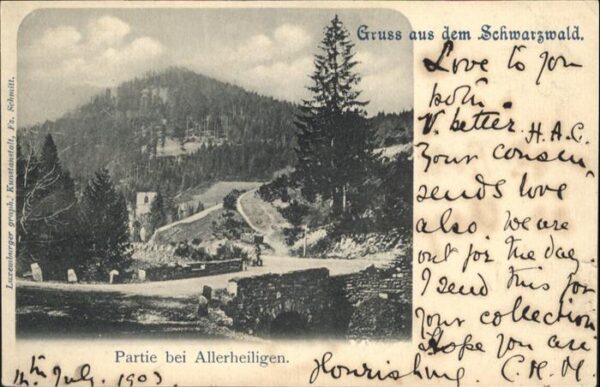 Gruss aus dem Schwarzwald.
Love to you
both
V. better. H.A.C.
Your cousin
sends love
also we are
out for the day.
I send this for
your collection
Hope you are
flourishing C.H.M.
Luxemburger graph. Kunstanstalt, Fz. Schmitt.
Partie bei Allerheiligen.
July. 1903